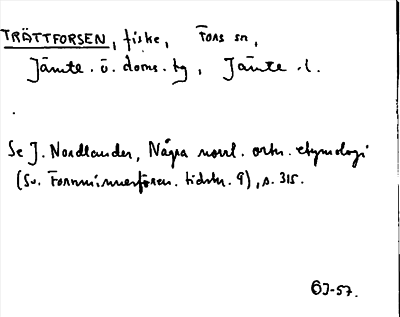 TRÄTTFORSEN, fiske, Fors sn,
Jämte. ö. doms. tg, Jämte. l.
Se J. Nordlander, Några norrl. ortn. etymologi
(Sv. Fornminnesfören. tidskr. 9), s. 315.
GJ-57.